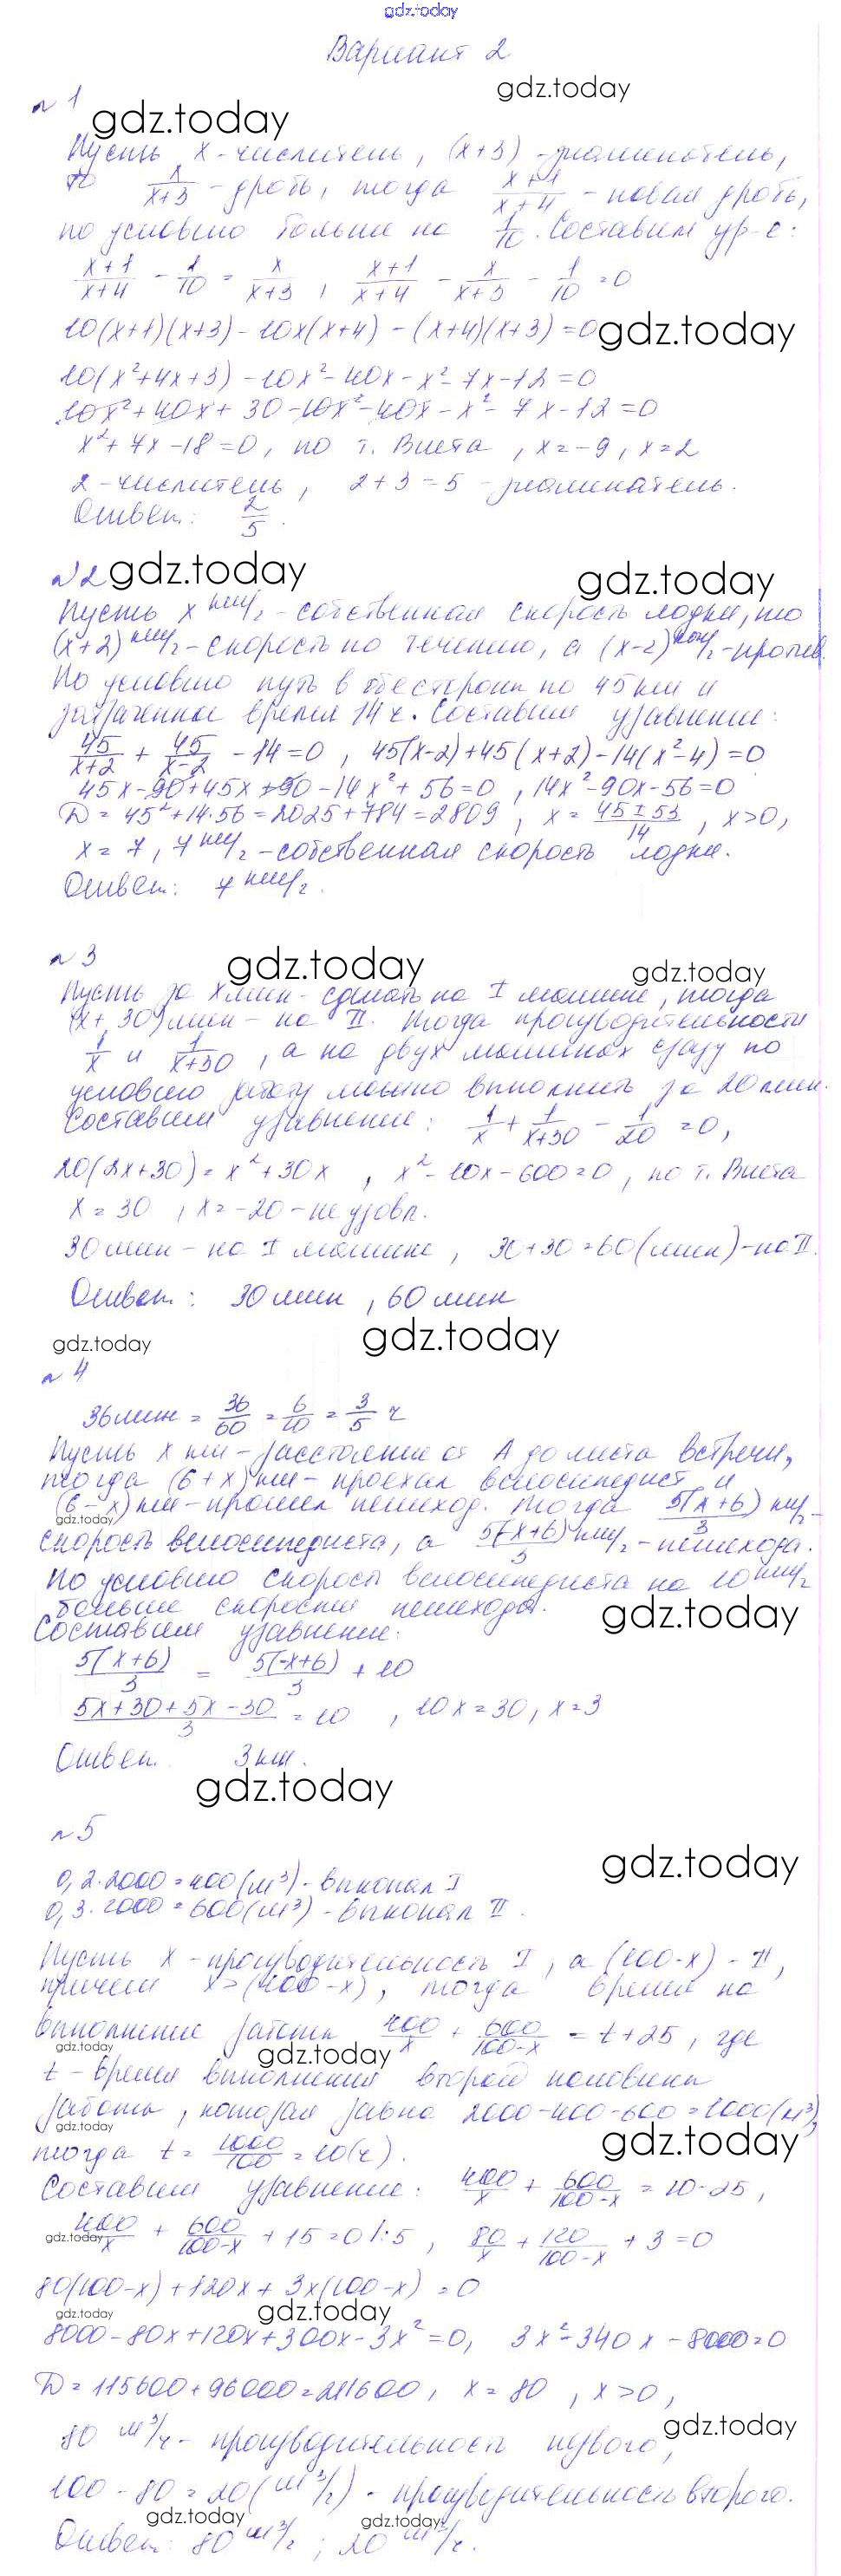 gdz.today
Вариант 2
gdz.today
№ 1
gdz.today
Пусть x - числитель, (x+3) - знаменатель,
то x/(x+3) - дробь, тогда (x+1)/(x+4) - новая дробь,
по условию больше на 1/10. Составим ур-е:
(x+1)/(x+4) - 1/10 = x/(x+3), (x+1)/(x+4) - x/(x+3) - 1/10 = 0
10(x+1)(x+3) - 10x(x+4) - (x+4)(x+3) = 0 gdz.today
10(x²+4x+3) - 10x² - 40x - x² - 7x - 12 = 0
10x² + 40x + 30 - 10x² - 40x - x² - 7x - 12 = 0
x² + 7x - 18 = 0, по т. Виета, x = -9, x = 2
2 - числитель, 2 + 3 = 5 - знаменатель.
Ответ: 2/5.
№2 gdz.today gdz.today
Пусть x км/ч - собственная скорость лодки, то
(x+2) км/ч - скорость по течению, а (x-2) км/ч - против.
По условию путь в обе стороны по 45 км и
затраченное время 14 ч. Составим уравнение:
45/(x+2) + 45/(x-2) - 14 = 0, 45(x-2) + 45(x+2) - 14(x²-4) = 0
45x - 90 + 45x + 90 - 14x² + 56 = 0, 14x² - 90x - 56 = 0
D = 45² + 14·56 = 2025 + 784 = 2809, x = (45 ± 53)/14, x > 0,
x = 7, 7 км/ч - собственная скорость лодки.
Ответ: 7 км/ч.
№ 3
gdz.today gdz.today
Пусть за x мин - сделать на I машине, тогда
(x + 30) мин - на II. Тогда производительности
1/x и 1/(x+30), а на двух машинах сразу по
условию работу можно выполнить за 20 мин.
Составим уравнение: 1/x + 1/(x+30) - 1/20 = 0,
20(2x+30) = x² + 30x, x² - 10x - 600 = 0, по т. Виета
x = 30, x = -20 - не удовл.
30 мин - на I машине, 30 + 30 = 60 (мин) - на II.
Ответ: 30 мин, 60 мин
gdz.today gdz.today
№ 4
36 мин = 36/60 = 6/10 = 3/5 ч
Пусть x км - расстояние от A до места встречи,
тогда (6 + x) км - проехал велосипедист и
(6 - x) км - прошел пешеход. Тогда 5(x+6)/3 км/ч -
gdz.today
скорость велосипедиста, а 5(-x+6)/3 км/ч - пешехода.
По условию скорость велосипедиста на 10 км/ч
больше скорости пешехода.
gdz.today
Составим уравнение:
5(x+6)/3 = 5(-x+6)/3 + 10
(5x+30+5x-30)/3 = 10, 10x = 30, x = 3
Ответ: 3 км.
gdz.today
№ 5
gdz.today
0,2·2000 = 400 (м³) - выкопал I
0,3·2000 = 600 (м³) - выкопал II.
Пусть x - производительность I, а (100-x) - II,
причем x > (100-x), тогда время на
выполнение работы 400/x + 600/(100-x) = t + 25, где
gdz.today gdz.today
t - время выполнения второй половины
работы, которая равна 2000-400-600 = 1000 (м³),
gdz.today
тогда t = 1000/100 = 10 (ч).
gdz.today
Составим уравнение: 400/x + 600/(100-x) = 10-25,
400/x + 600/(100-x) + 15 = 0 |:5, 80/x + 120/(100-x) + 3 = 0
gdz.today
80(100-x) + 120x + 3x(100-x) = 0
gdz.today gdz.today
8000 - 80x + 120x + 300x - 3x² = 0, 3x² - 340x - 8000 = 0
D = 115600 + 96000 = 211600, x = 80, x > 0,
gdz.today
80 м³/ч - производительность первого,
100 - 80 = 20 (м³/ч) - производительность второго.
gdz.today gdz.today
Ответ: 80 м³/ч; 20 м³/ч.